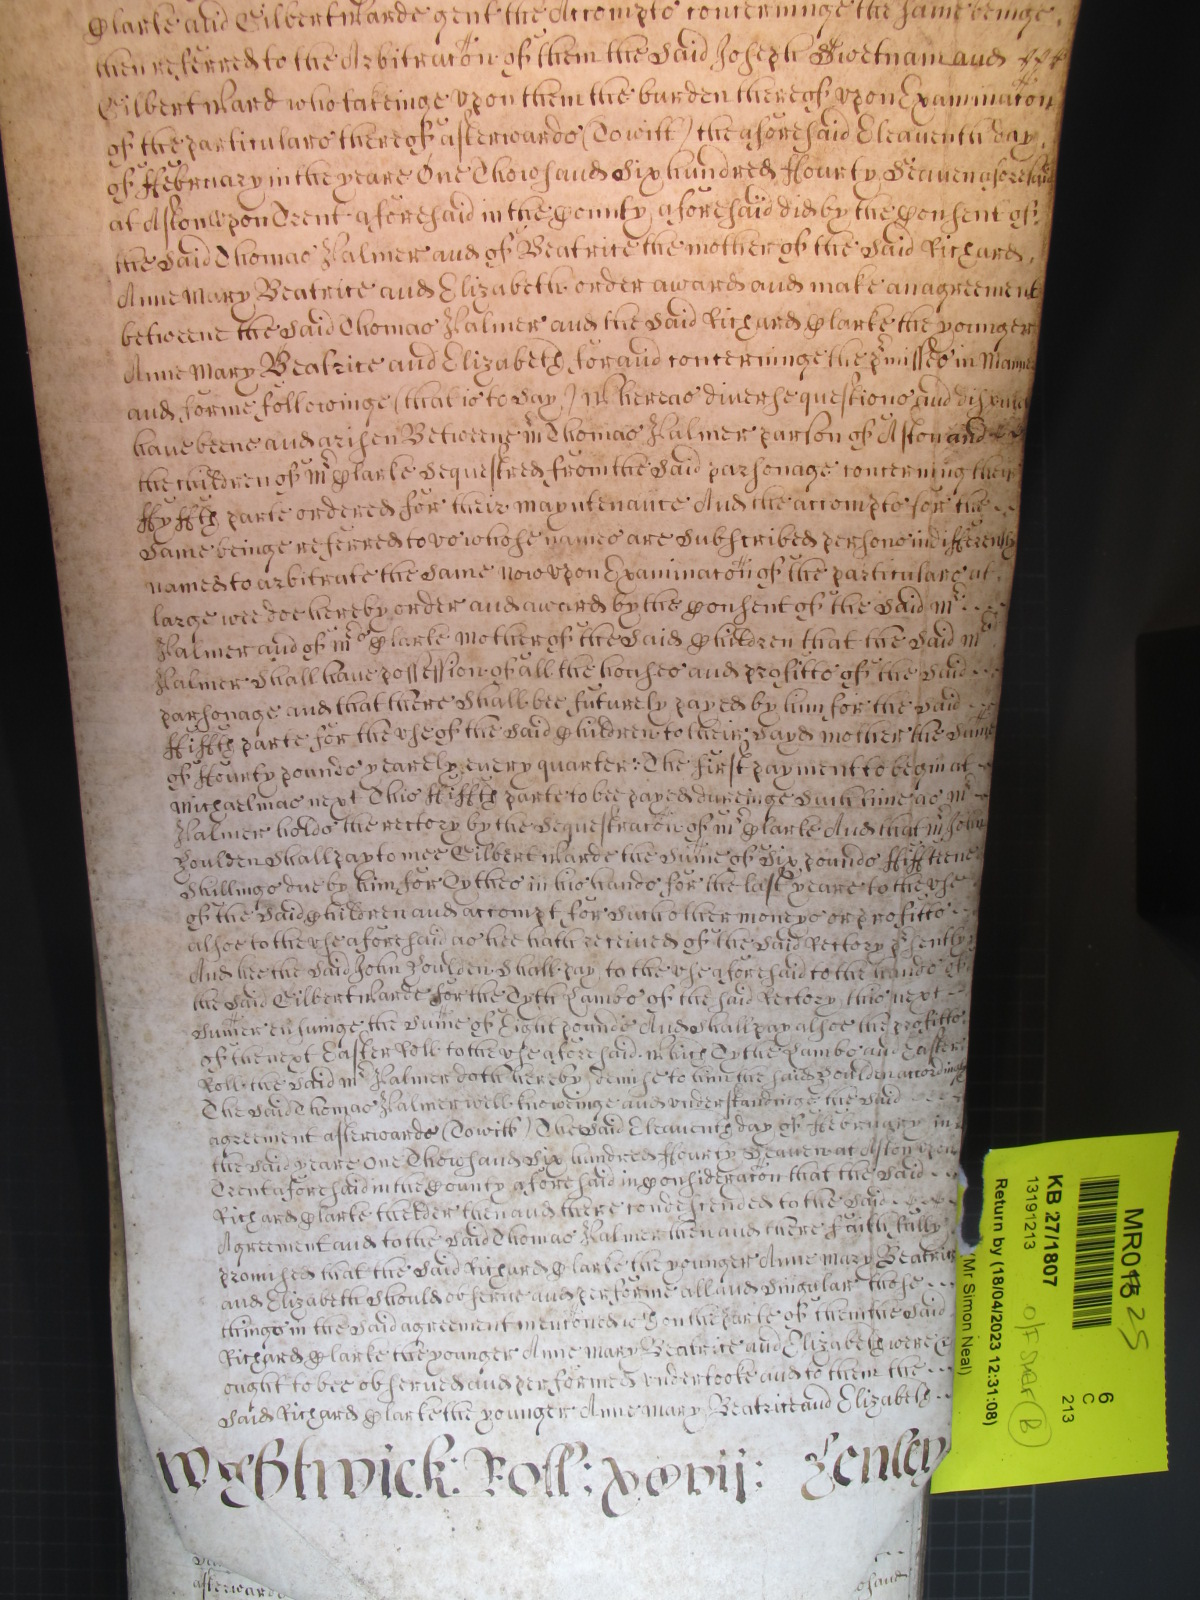 Clarke and Gilbert Warde gent the Accompts concerninge the same beinge
then referred to the Arbitracon of them the said Joseph Swetnam and
Gilbert Ward who takeinge upon them the burden thereof upon Examinacon
of the particulars thereof afterwards (To witt) the aforesaid Eleaventh day
of ffebruary in the yeare One Thowsand Six hundred ffourty Seaven aforesaid
at Aston upon Trent aforesaid in the County aforesaid did by the Consent of
the said Thomas Palmer and of Beatrice the mother of the said Richard
Anne Mary Beatrice and Elizabeth order award and make an agreement
betweene the said Thomas Palmer and the said Richard Clarke the younger
Anne Mary Beatrice and Elizabeth for and concerninge the pmisses in Manner
and forme followinge (that is to say) Whereas diverse questions and
have beene and arisen Betweene Mr Thomas Palmer parson of Aston and
the children of Mr Clarke sequestred from the said parsonage concerning their
ffyffth parte ordered for their mayntenance And the accompts for the
same beinge referred to us whose names are subscribed persons indifferently
named to arbitrate the same now upon Examinacon of the particulars at
large wee doe hereby order and award by the Consent of the said Mr
Palmer and of Mrs Clarke mother of the said Children that the said Mr
Palmer shall have possession of all the houses and profitts of the said
parsonage and that there shall bee futurely payed by him for the said
ffiffth parte for the use of the said Children to their sayd mother the Sume
of ffourty pounds yearely every quarter: The first payment to begin at
Michaelmas next This ffiffth parte to bee payed dureinge such time as Mr
Palmer holds the rectory by the Sequestracon of Mr Clarke And that Mr John
Boulden shall pay to mee Gilbert Warde the Sume of Six pounds ffiffteene
Shillings due by him for Tythes in his hands for the last yeare to the use
of the said Children and accompt for such other moneys or profitts
alsoe to the use aforesaid as hee hath received of the said Rectory psently
And hee the said John Boulden shall pay to the use aforesaid to the hands of
the said Gilbert Warde for the Tyth Lambs of the said Rectory this next
Sumer ensuinge the Sume of Eight pounds And shall pay alsoe the profitts
of the next Easter Roll to the use aforesaid which Tythe Lambs and Easter
Roll the said Mr Palmer doth hereby demise to him the said Boulden accordingly
The said Thomas Palmer well knoweinge and understandinge the said
agreement afterwards (To witt) The said Eleaventh day of ffebruary in
the said yeare One Thowsand Six hundred ffourty Seaven at Aston upon
Trent aforesaid in the County aforesaid in Consideracon that the said
Richard Clarke the elder then and there condescended to the said
Agreement and to the said Thomas Palmer then and there faithfully
promised that the said Richard Clarke the younger Anne Mary Beatrice
and Elizabeth should observe and performe all and singular those
things in the said agreement mentioned wch on the parte of them the said
Richard Clarke the younger Anne Mary Beatrice and Elizabeth were
ought to bee observed and performed undertooke and to them the
said Richard Clarke the younger Anne Mary Beatrice and Elizabeth
Wightwick: Roll: xcvij: Henley
afterwards
MR018 25
6
C
213
KB 27/1807
13191213
Return by (18/04/2023 12:31:08)
(Mr Simon Neal)